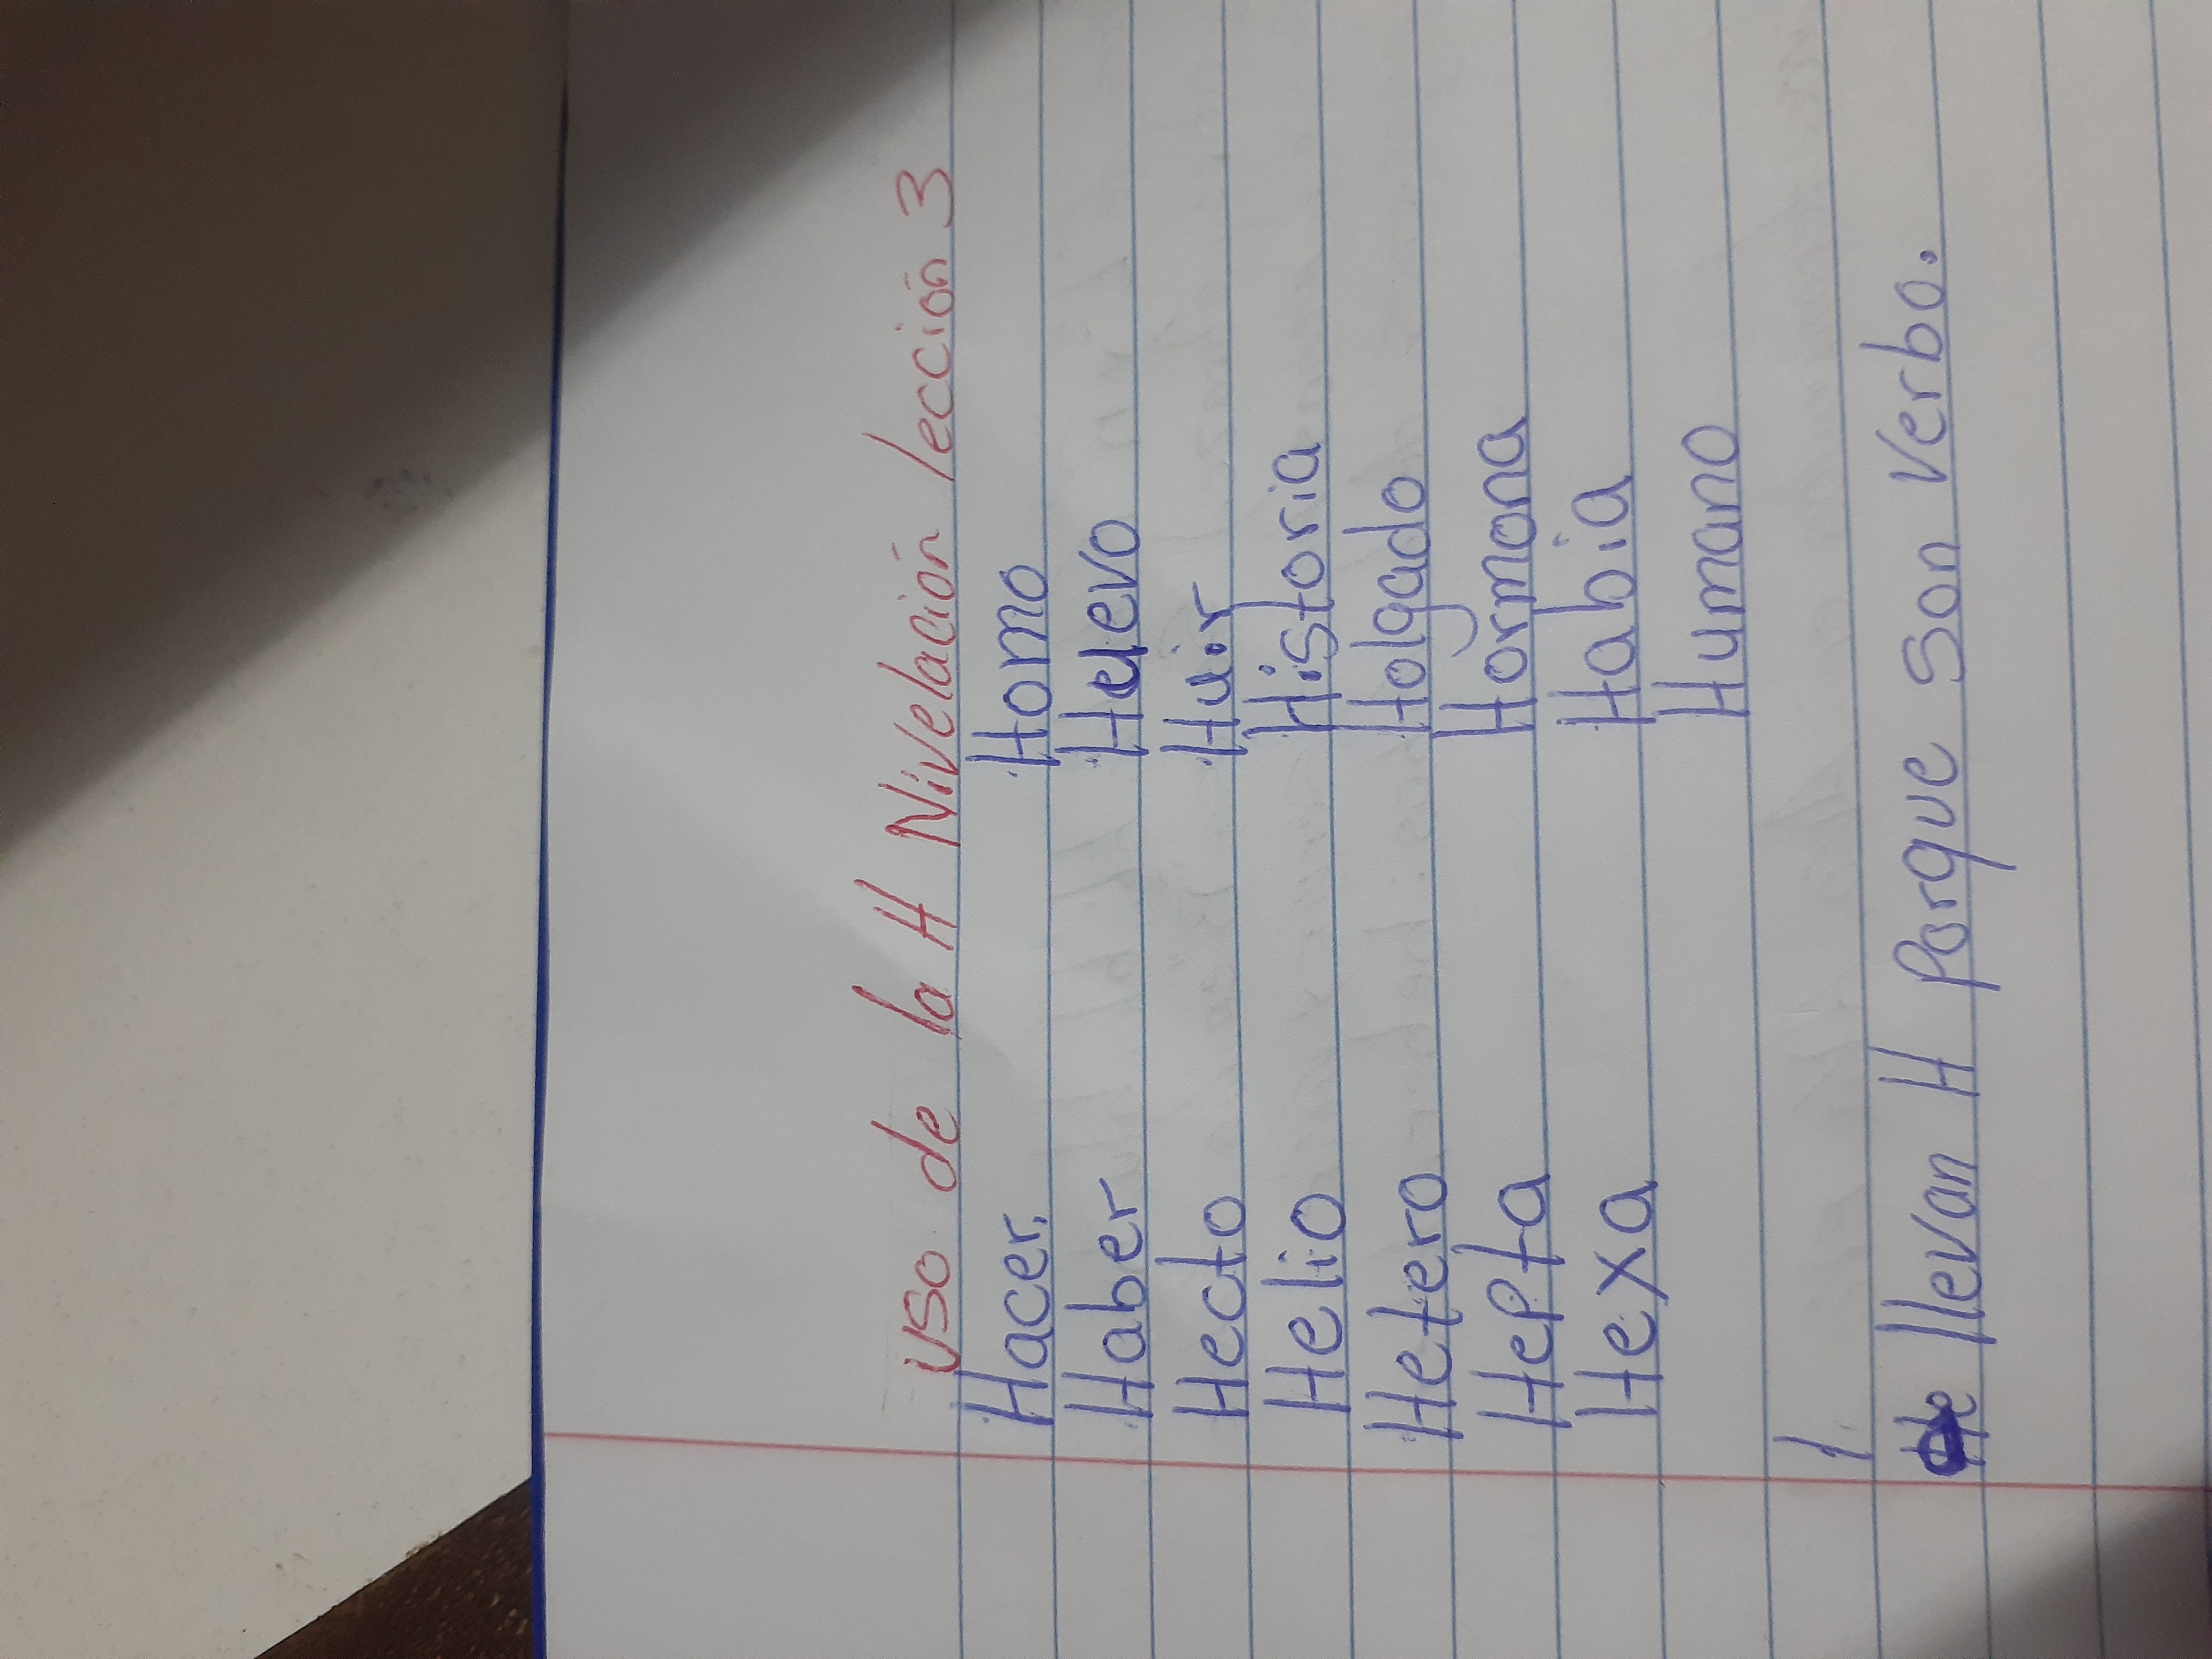 uso de la H Nivelación lección 3
Hacer. Homo
Haber Huevo
Hecto Huir
Helio Historia
Hetero Holgado
Hepta Hormona
Hexa Habia
Humano
1
llevan H Porque son verbo.